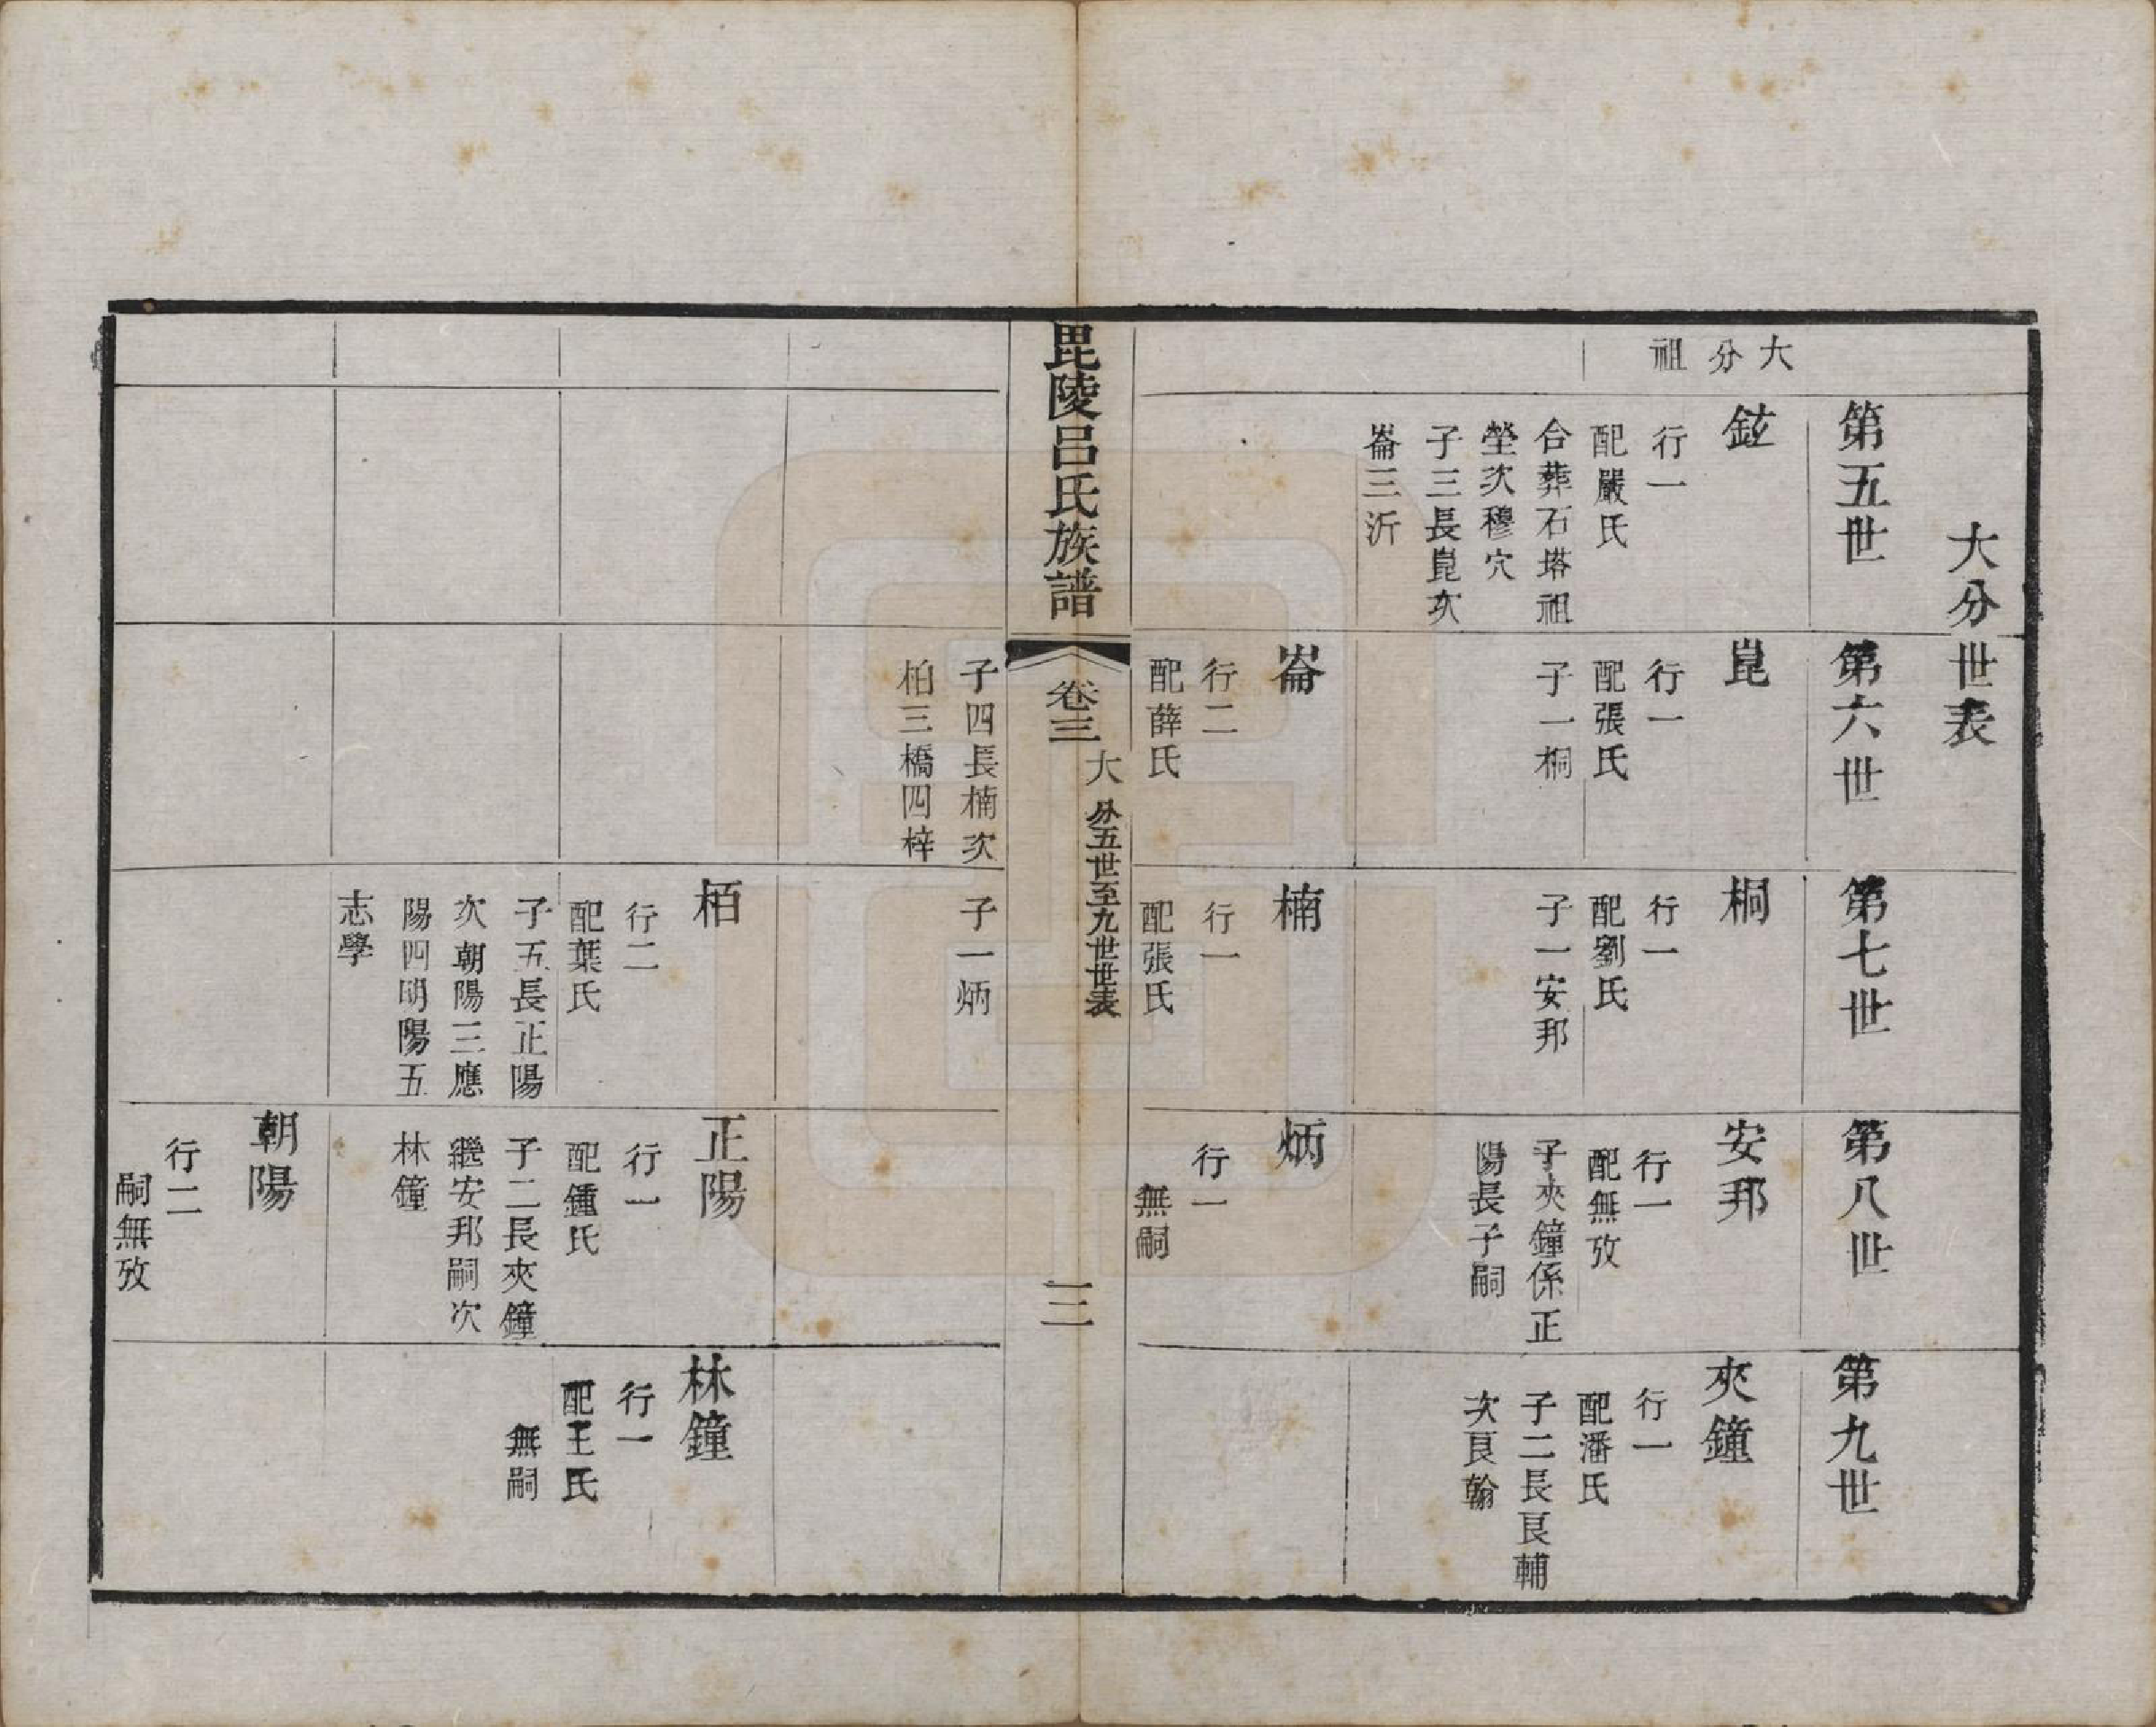 大分世表
大分祖
第五世
鉉
行一
配嚴氏
合葬石塔祖
塋次穆穴
子三長崑次
崙三沂
第六世
崑
行一
配張氏
子一桐
崙
行二
配薛氏
第七世
桐
行一
配劉氏
子一安邦
楠
行一
配張氏
第八世
安邦
行一
配無攷
子夾鐘係正
陽長子嗣
炳
行一
無嗣
第九世
夾鐘
行一
配潘氏
子二長良輔
次良翰
毘陵呂氏族譜
卷三
大分五世至九世世表
三
子四長楠次
柏三橋四梓
子一炳
栢
行二
配葉氏
子五長正陽
次朝陽三應
陽四明陽五
志學
正陽
行一
配鍾氏
子二長夾鐘
繼安邦嗣次
林鐘
朝陽
行二
嗣無攷
林鐘
行一
配王氏
無嗣